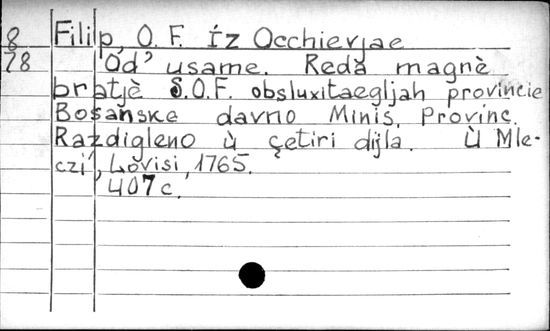 8 Filip, O. F. íz Occhievjae
78 Od' usame. Redă magnè
bratjè S.O.F. obsluxitaegljah provincie
Bosanske davno Minis, Provinc.
Razdigleno ù çetiri dijla. Ù Mle-
czi, Lovisi, 1765.
407 c.